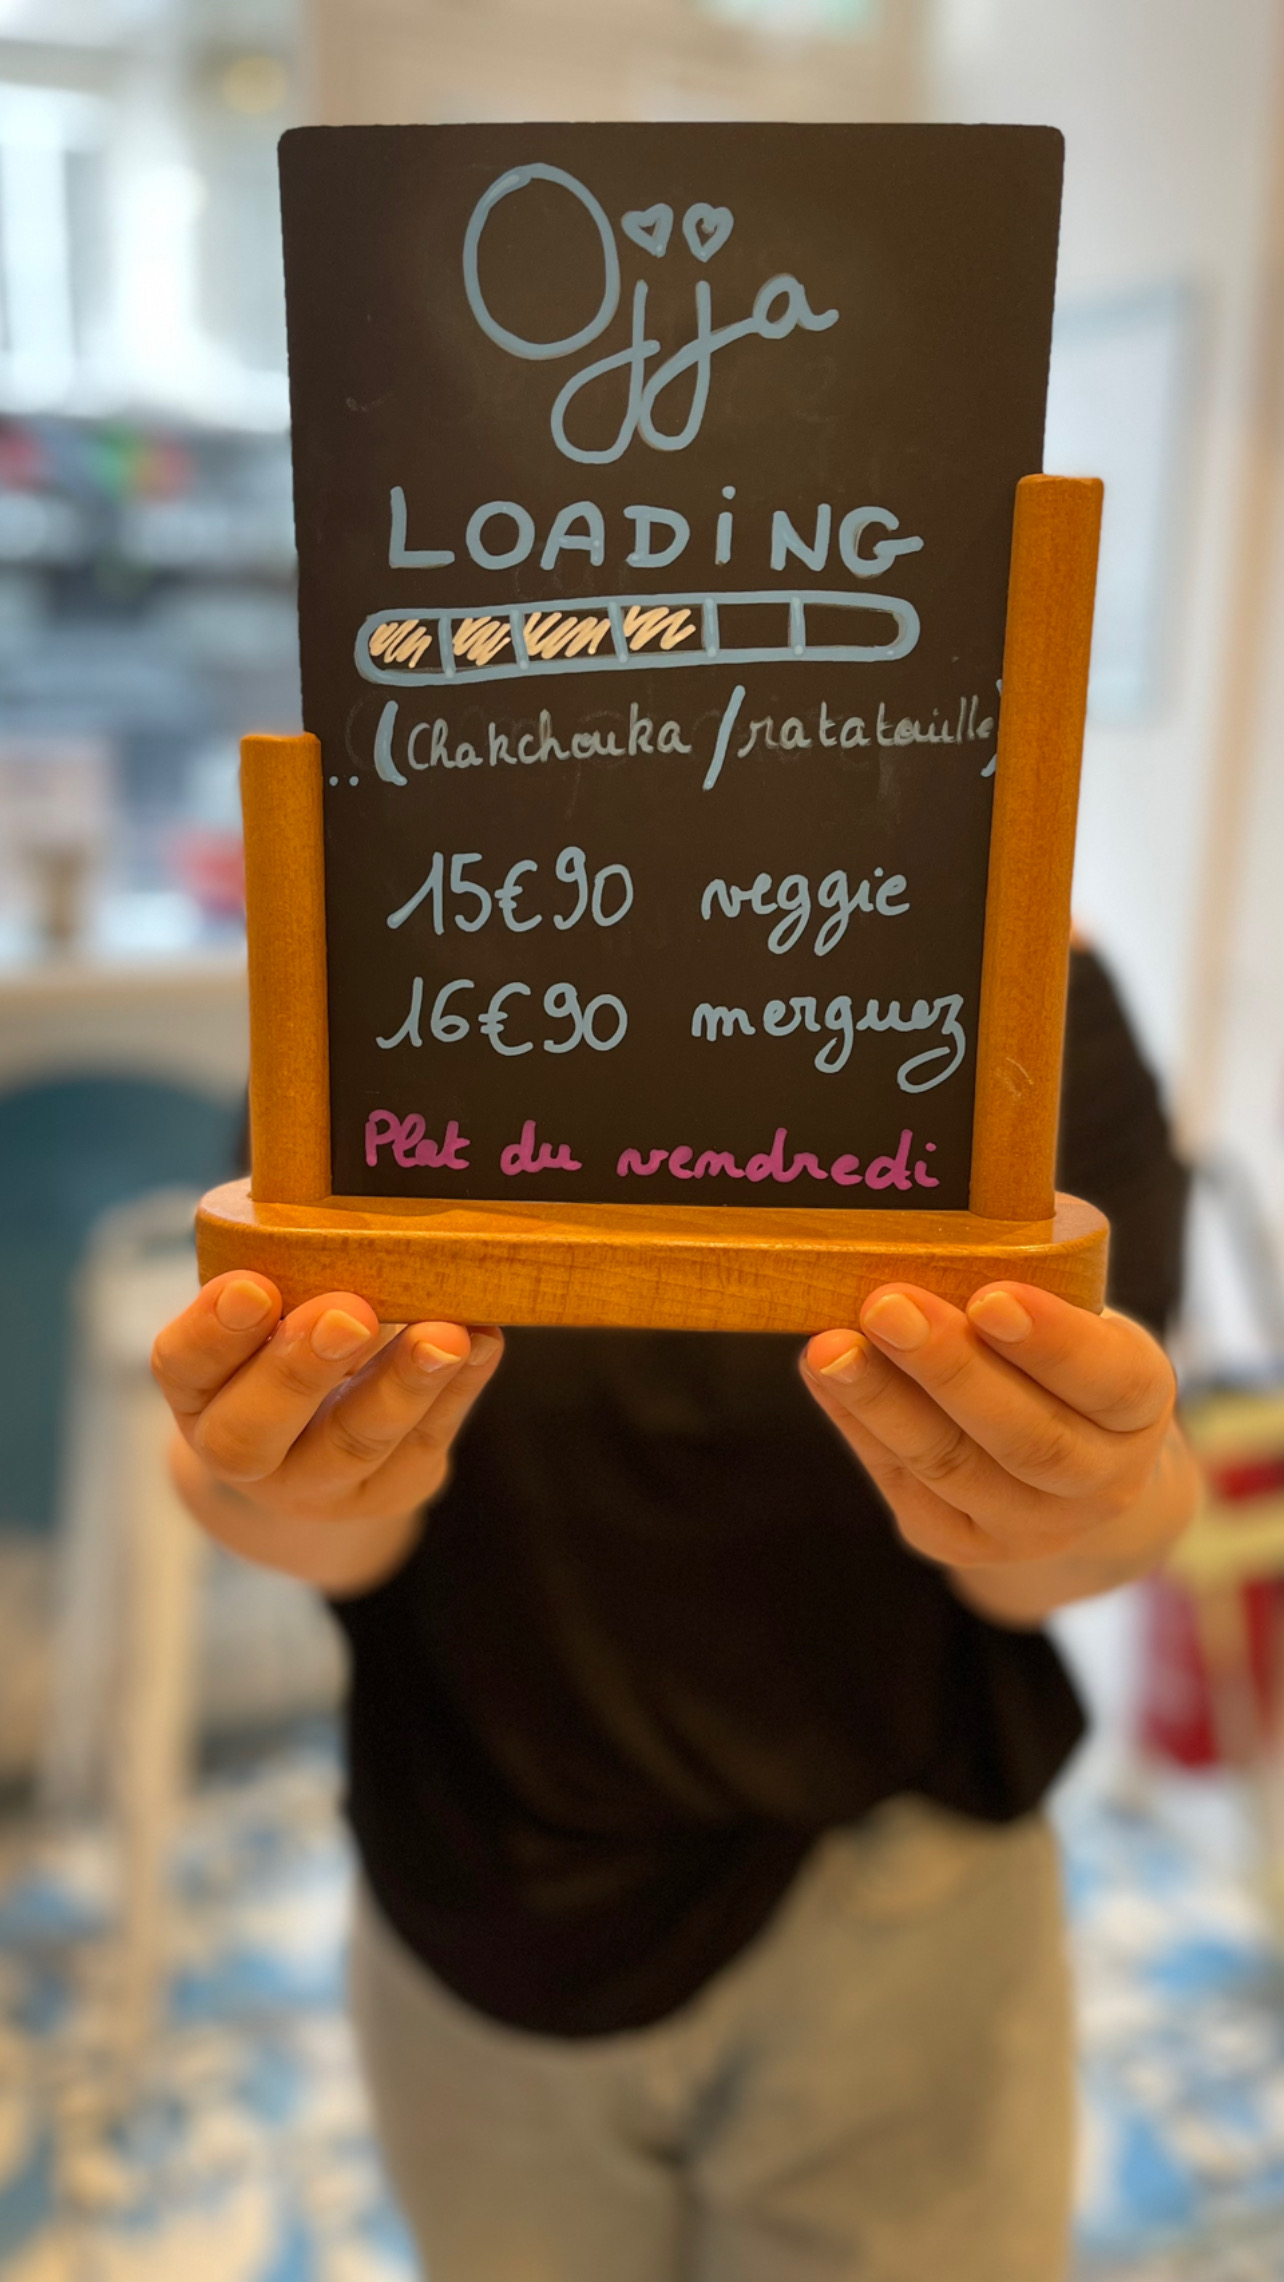 Ojja
LOADiNG
..(Chakchouka/ratatouille)
15€90 veggie
16€90 merguez
Plat du vendredi